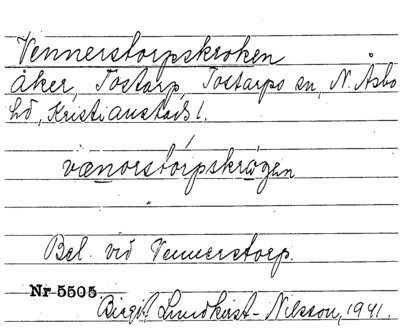 Vennerstorpskroken
åker, Tostarp, Tostarps sn, N. Åsbo
hd, Kristianstads l.
vænorstórpskrògen
Bel. vid Vennerstorp.
Nr 5505
Birgit Lundkvist-Nilsson, 1941.